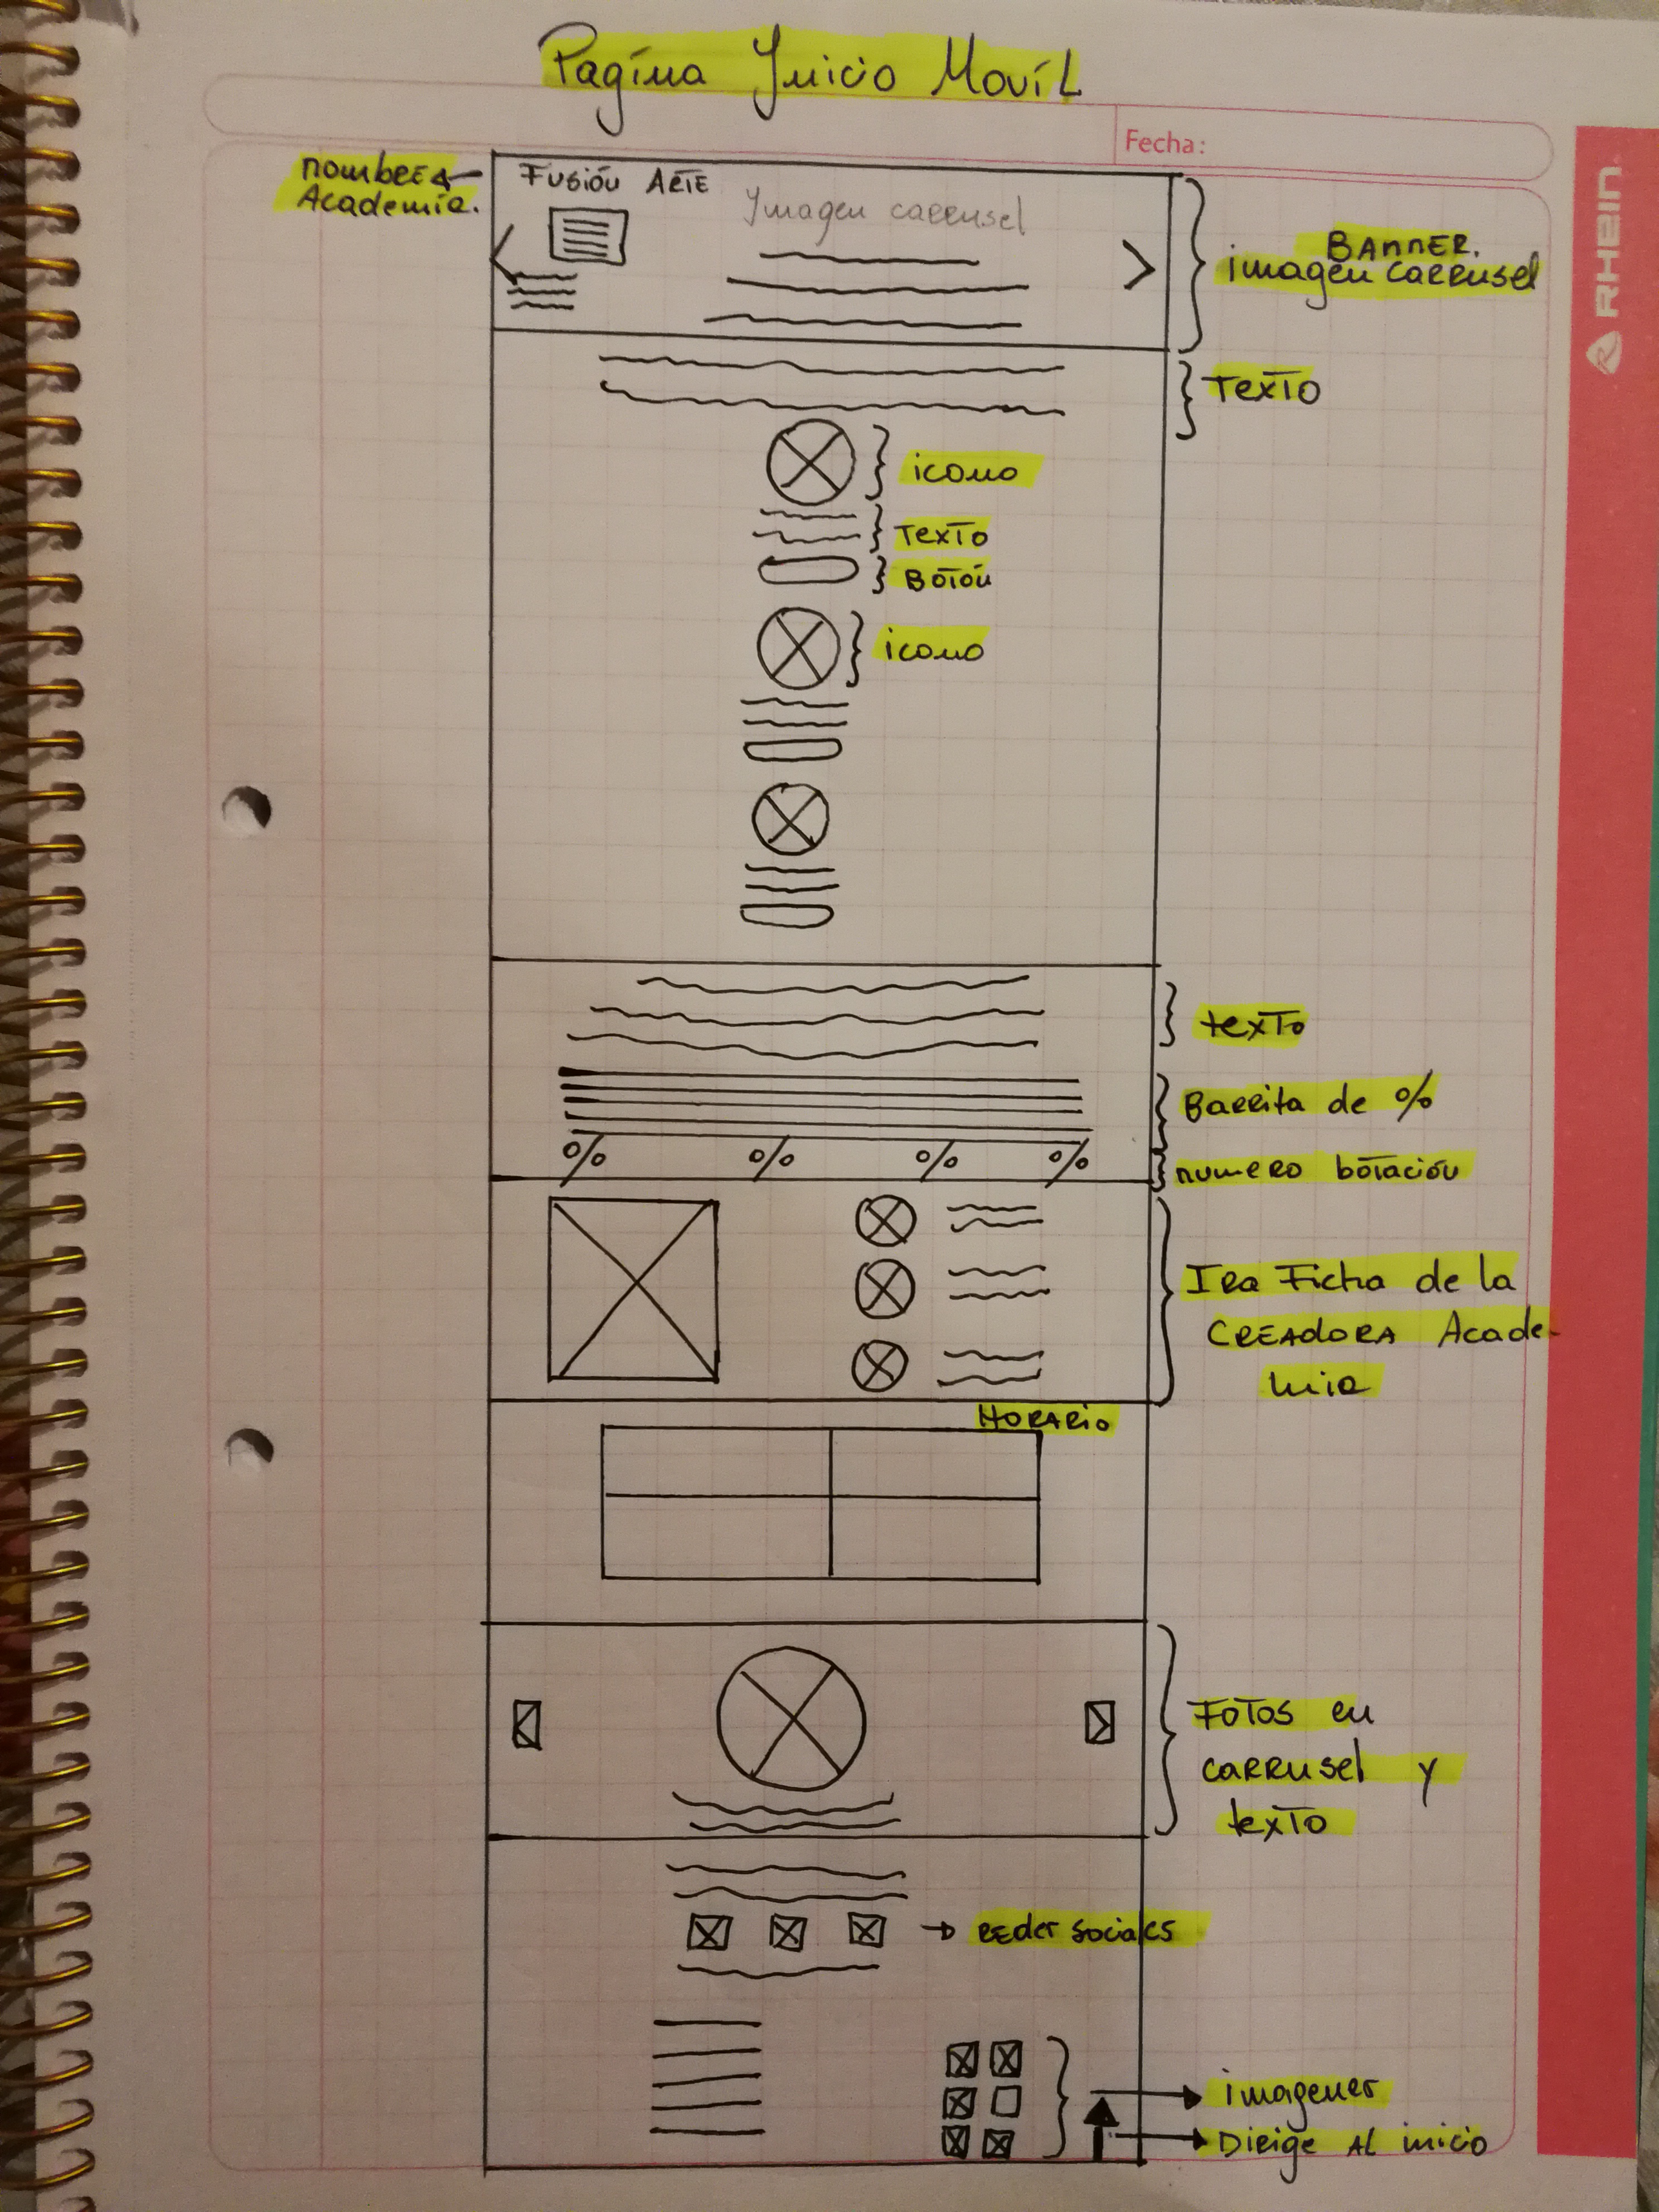 Pagína Inicio Movíl
Fecha:
RHEIN
nombre
Academia.
Fusión Arte
Imagen carrusel
BANNER.
imagen carrusel
Texto
icono
Texto
Botón
icono
texto
Barrita de %
% % % %
numero botación
Ira Ficha de la
CREADORA Acade-
mia
HORARIO
FOTOS en
carrusel y
texto
Redes sociales
imagenes
Dirige Al inicio